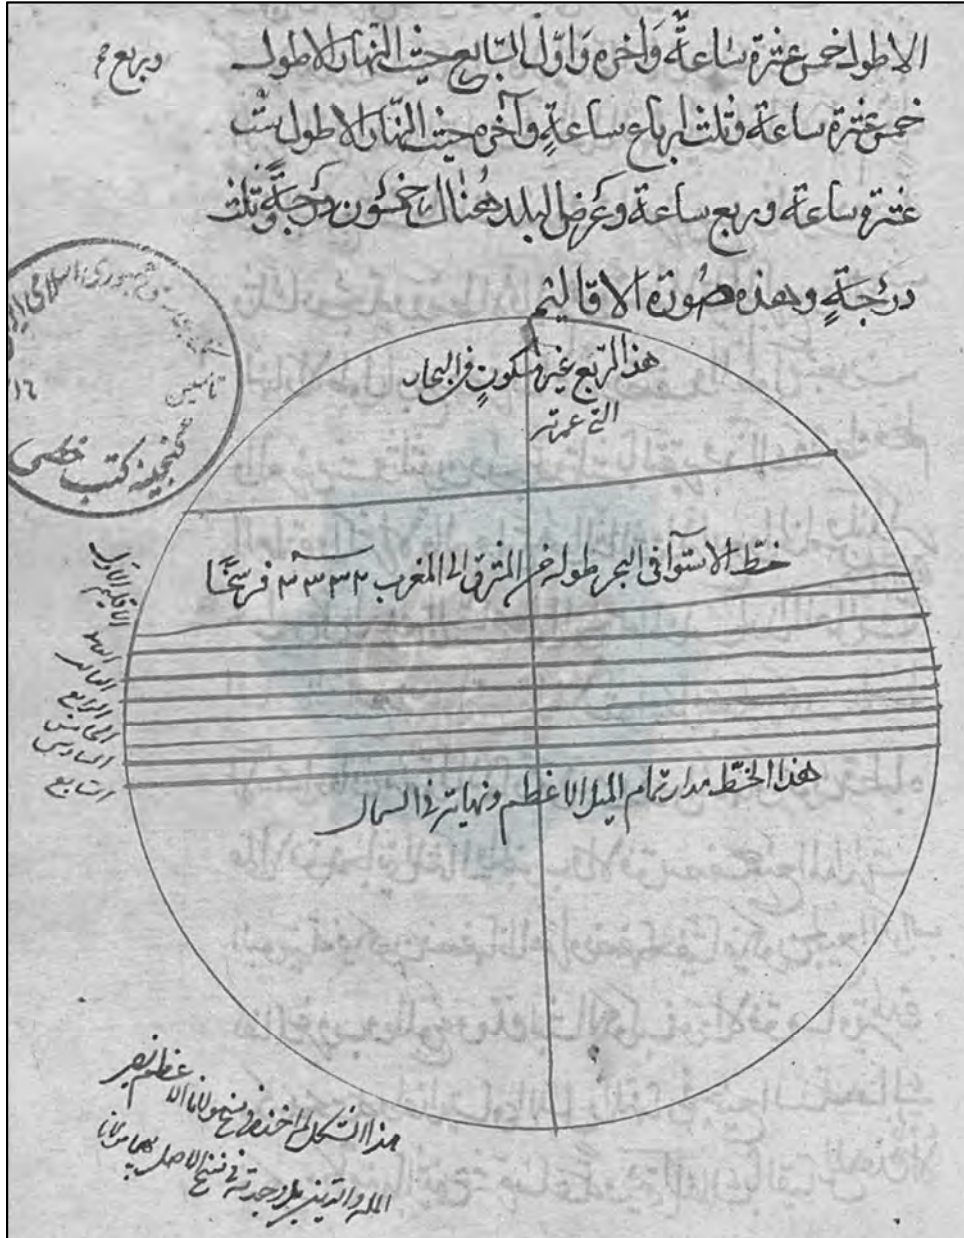 الاطول خمس عشرة ساعةً وَاخره وَاوّل السّابع حيث النّهار الاطول
وبربع
خمس عشرة ساعة وثلث ارباع ساعةٍ وآخره حيث النّهار الاطول ست
عشرة ساعة وربع ساعة وعرض البلد هناك خمسون درجة وثلث
درجةٍ وهذه صورة الاقاليم
هذا الرّبع غير مسكونٍ من البحار
التي
خطّ الاستوآ فى البحر طوله من المشرق الى المغرب ٣٣٣٣ فرسخًا
الاقليم الاول
الثانى
الثالث
الرابع
الخامس
السادس
السابع
هذا الخطّ مدار تمام الميل الاعظم ونهايته فى الشمال
جمهورى اسلامى
تاسيس
گنجينه كتب خطى
هذا الشكل اخذ من مولانا الاعظم نصير
المله والدين بل وجدته فى نسخ الاصل